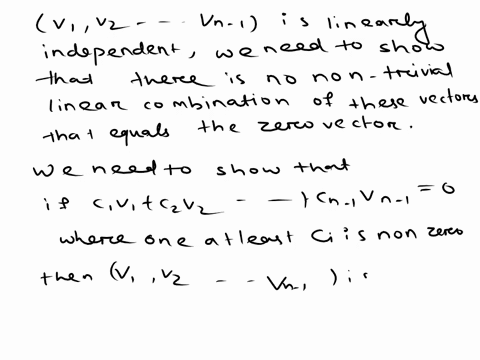 (v1, v2 - - - Vn-1) is linearly
independent, we need to show
that there is no non-trivial
linear combination of these vectors
that equals the zero vector.
we need to show that
if c1v1 + c2v2 - — + cn-1 Vn-1 = 0
where one atleast ci is non zero
then (V1, v2 - - Vn-1 ) is